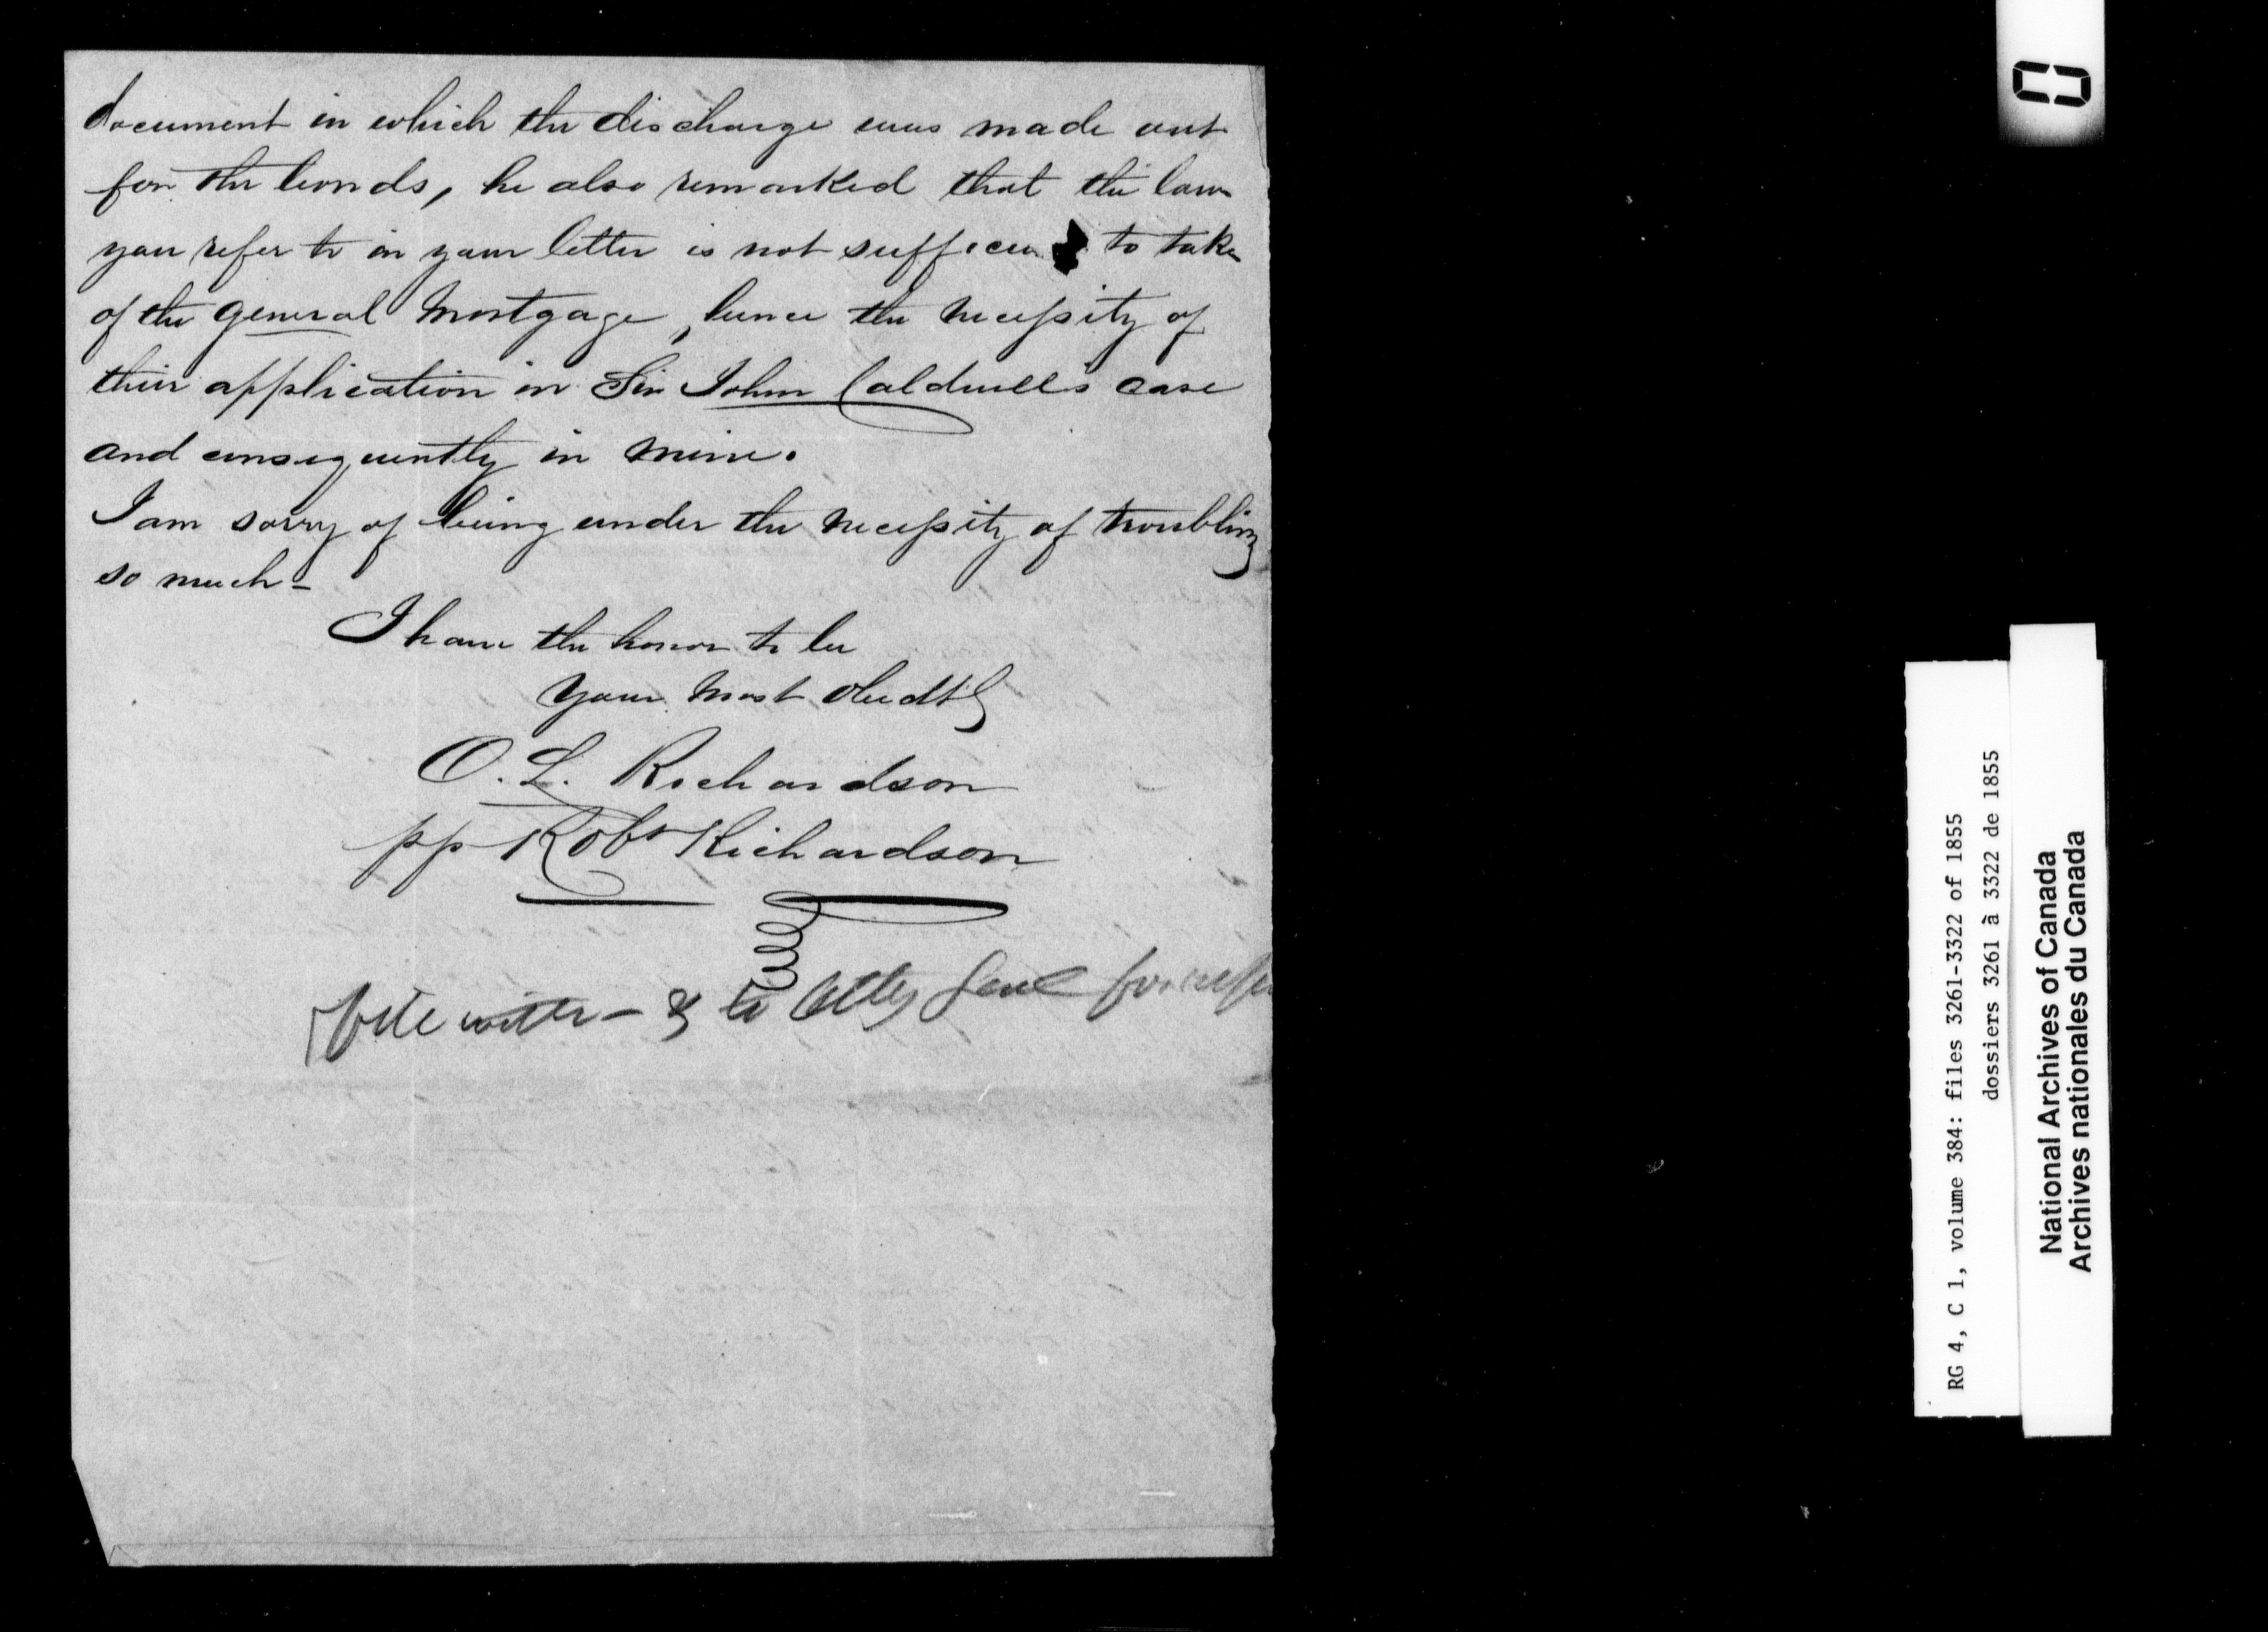 document in which the discharge was made out
for the bonds, he also remarked that the law
you refer to in your letter is not sufficien to take
of the general Mortgage, hence the necessity of
their application in Sir John Caldwell's case
and consequently in mine.
I am sorry of being under the necessity of troubling
so much -
I have the honor to be
Your most obedt S
O. L. Richardson
pp Robt Richardson
file with - & to Atty Genl for
RG 4, C 1, volume 384: files 3261-3322 of 1855
dossiers 3261 à 3322 de 1855
National Archives of Canada
Archives nationales du Canada